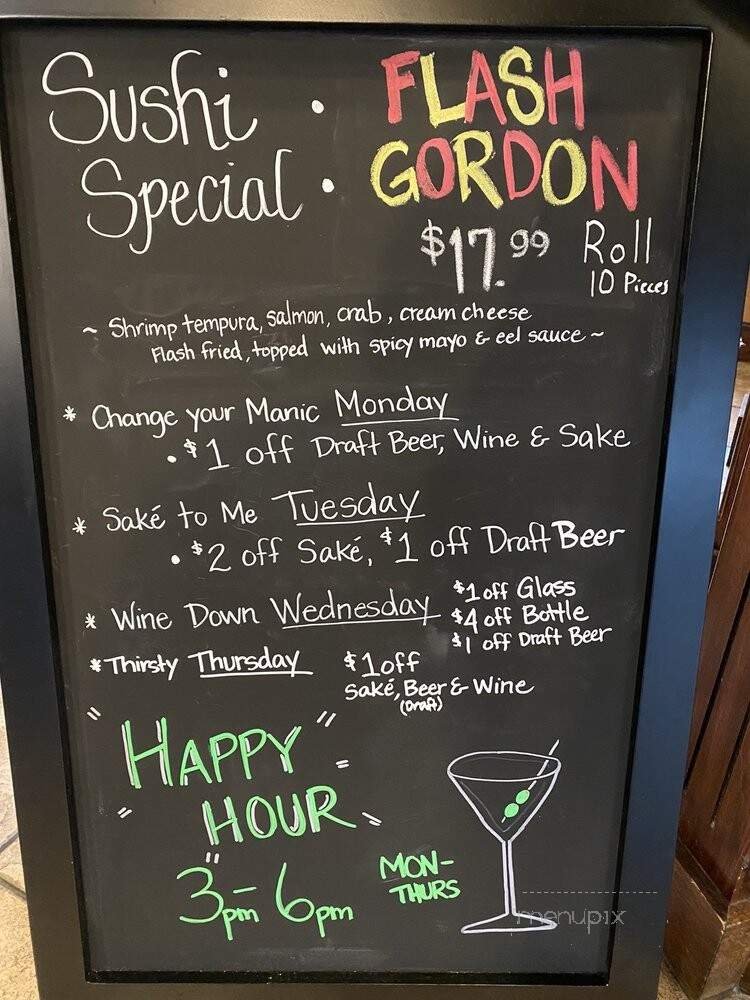 Sushi Special • FLASH GORDON
$17.99 Roll
10 Pieces
~ Shrimp tempura, salmon, crab, cream cheese
Flash fried, topped with spicy mayo & eel sauce ~
* Change your Manic Monday
• $1 off Draft Beer, Wine & Sake
* Saké to Me Tuesday
• $2 off Saké, $1 off Draft Beer
* Wine Down Wednesday
$1 off Glass
$4 off Bottle
$1 off Draft Beer
* Thirsty Thursday
$1 off
Saké, Beer & Wine
(Draft)
HAPPY
HOUR
3pm - 6pm
MON-
THURS
menupix